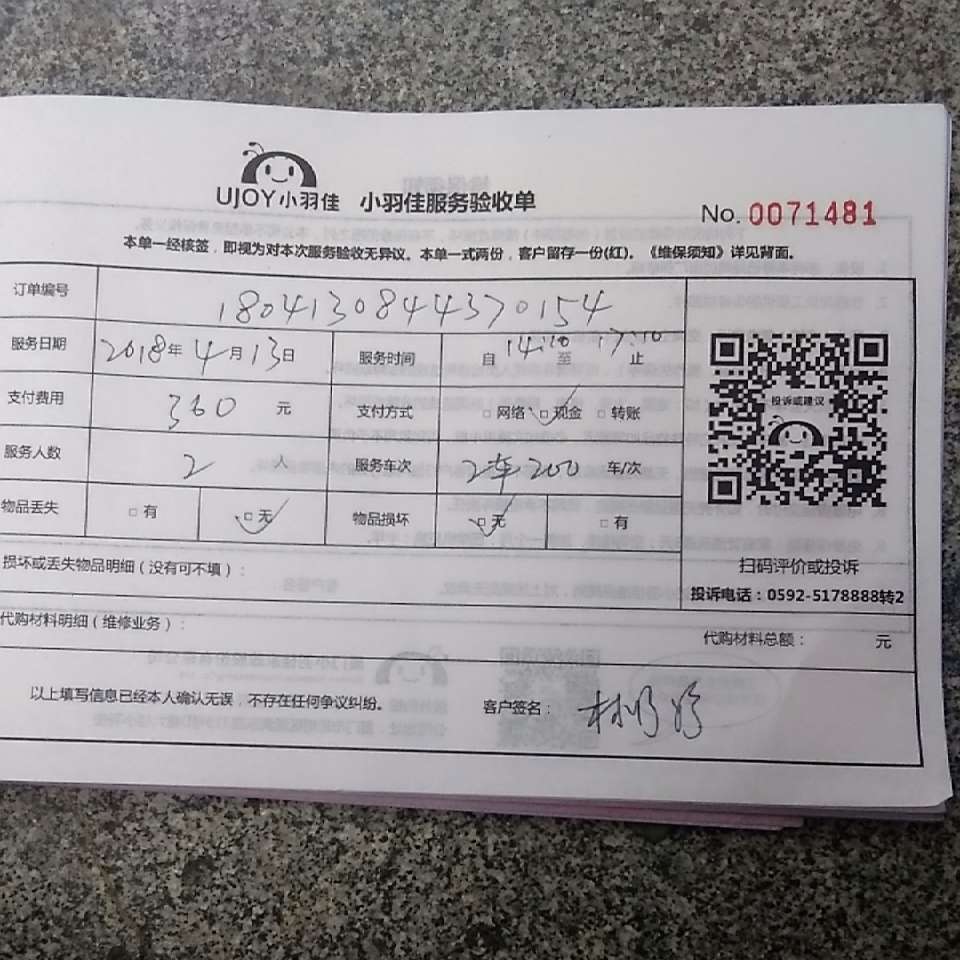 UJOY小羽佳 小羽佳服务验收单
No. 0071481
本单一经核签，即视为对本次服务验收无异议。本单一式两份，客户留存一份(红)。《维保须知》详见背面。
订单编号 1804130844370154
服务日期 2018年4月13日 服务时间 自14:10至17:10止
支付费用 360元 支付方式 □网络 □现金 □转账
服务人数 2人 服务车次 2车200 车/次
物品丢失 □有 □无 物品损坏 □无 □有
投诉或建议
扫码评价或投诉
投诉电话：0592-5178888转2
损坏或丢失物品明细（没有可不填）：
代购材料明细（维修业务）： 代购材料总额： 元
以上填写信息已经本人确认无误，不存在任何争议纠纷。 客户签名：林